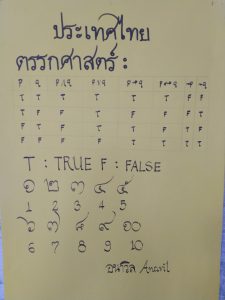 ประเทศไทย
ตรรกศาสตร์ :
P Q P∧Q P∨Q P→Q P↔Q ~P ~Q
T T T T T T F F
T F F T F F F T
F T F T T F T F
F F F F T T T T
T : TRUE F : FALSE
๑ ๒ ๓ ๔ ๕
1 2 3 4 5
๖ ๗ ๘ ๙ ๑๐
6 7 8 9 10